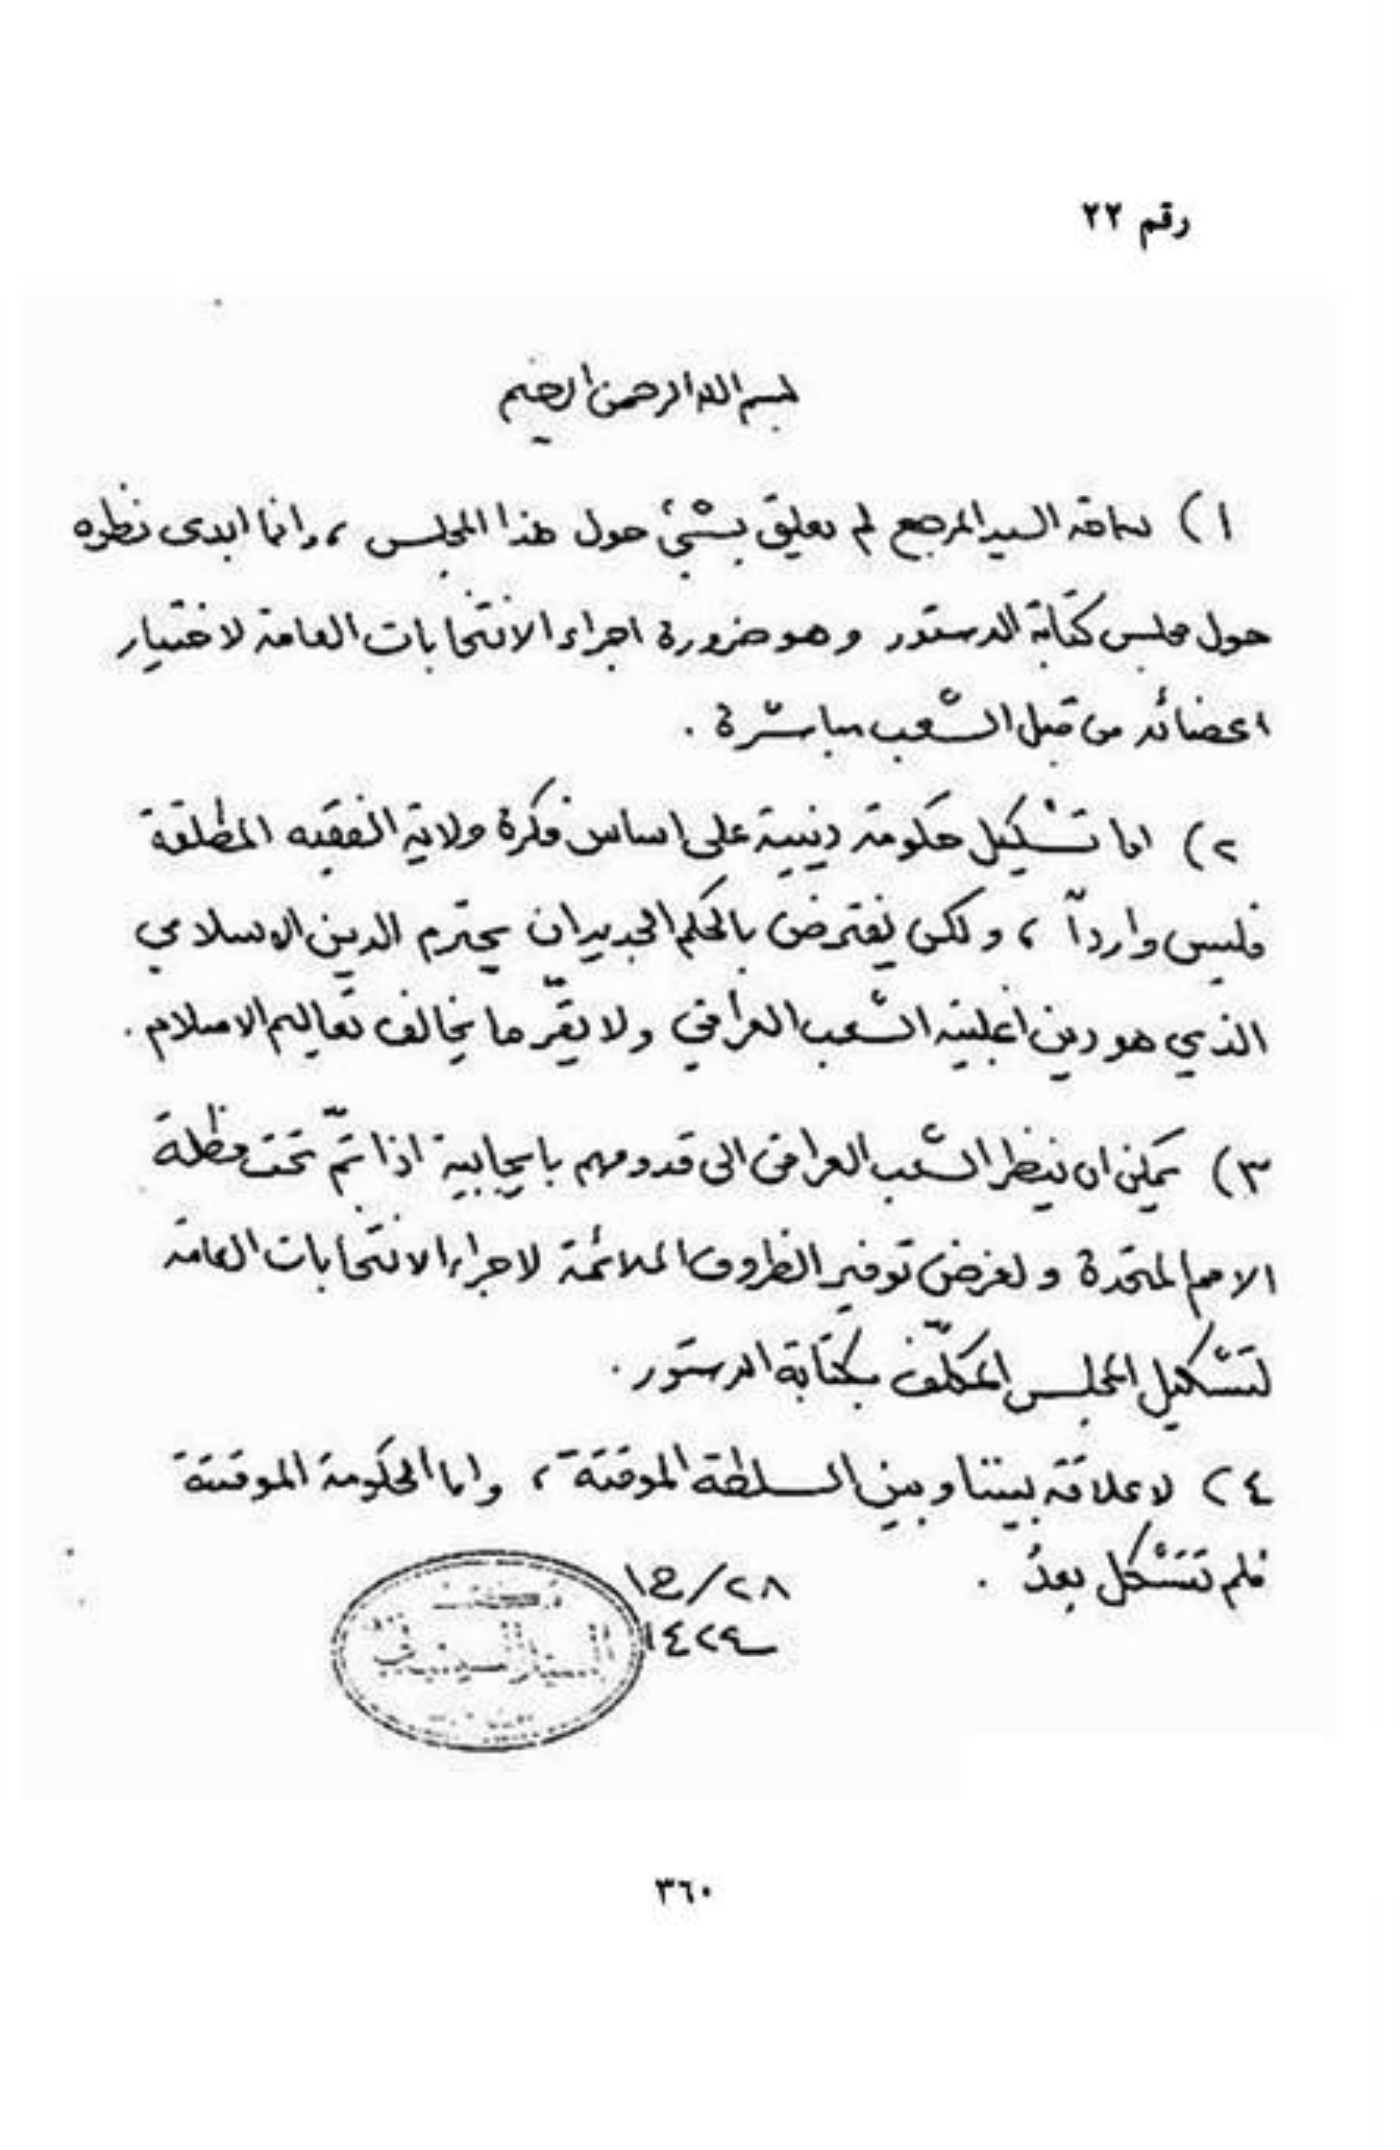 رقم ٢٢
بسم الله الرحمن الرحيم
١) سماحة السيد المرجع لم يعلق بشئ حول هذا المجلس ، وانما ابدى نظره
حول مجلس كتابة الدستور وهو ضرورة اجراء الانتخابات العامة لاختيار
اعضائه من قبل الشعب مباشرة .
٢) اما تشكيل حكومة دينية على اساس فكرة ولاية الفقيه المطلقة
فليس وارداً ، ولكن يفترض بالحكم الجديد ان يحترم الدين الاسلامي
الذي هو دين اغلبية الشعب العراقي ولا يقرّ ما يخالف تعاليم الاسلام .
٣) يمكن ان ينظر الشعب العراقي الى قدومهم بايجابية اذا تمّ تحت مظلة
الامم المتحدة ولغرض توفير الظروف الملائمة لاجراء الانتخابات العامة
لتشكيل المجلس المكلّف بكتابة الدستور .
٤) لا علاقة بيننا وبين السلطة الموقتة ، واما الحكومة الموقتة
فلم تتشكل بعدُ .
٢٨/ج١
١٤٢٤
السيد السيستاني
٣٦٠